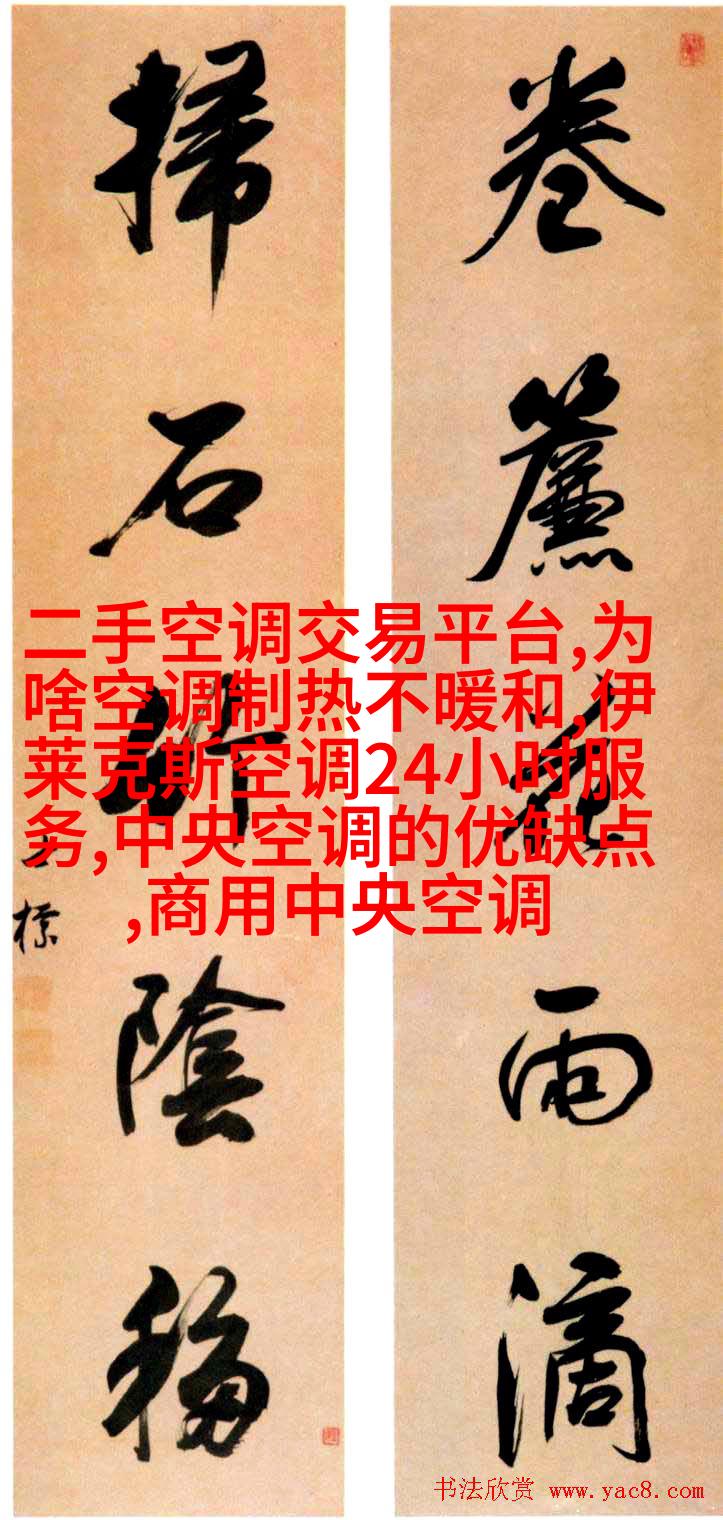 卷簾花雨滴
掃石竹陰移
士標
二手空调交易平台,为
啥空调制热不暖和,伊
莱克斯空调24小时服
务,中央空调的优缺点
,商用中央空调
书法欣赏 www.yac8.com